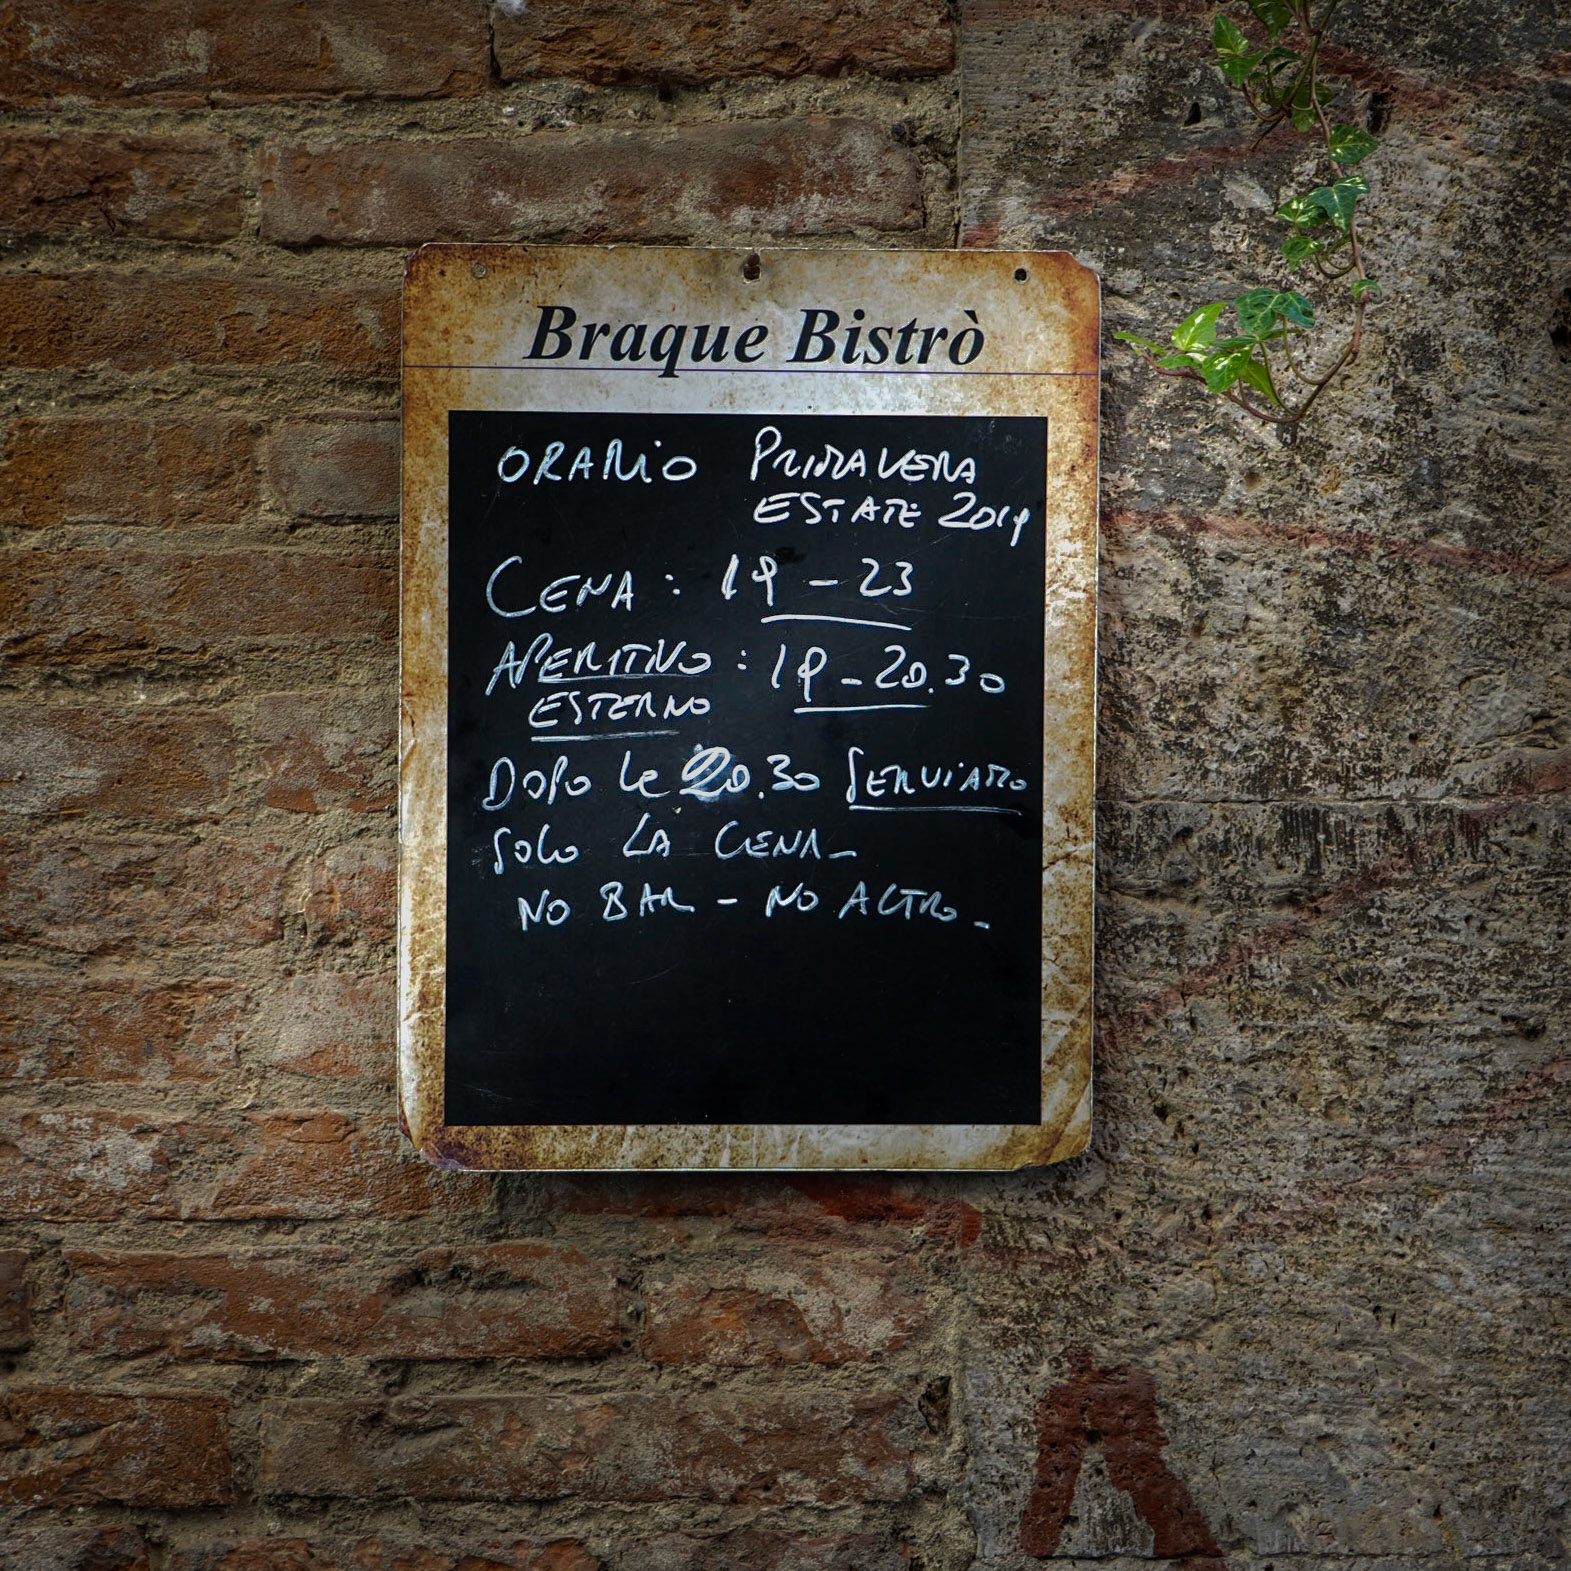 Braque Bistrò
ORARIO PRIMAVERA
ESTATE 2019
CENA: 19 - 23
APERITIVO: 19 - 20.30
ESTERNO
DOPO LE 20.30 SERVIAMO
SOLO LA CENA -
NO BAR - NO ALTRO -